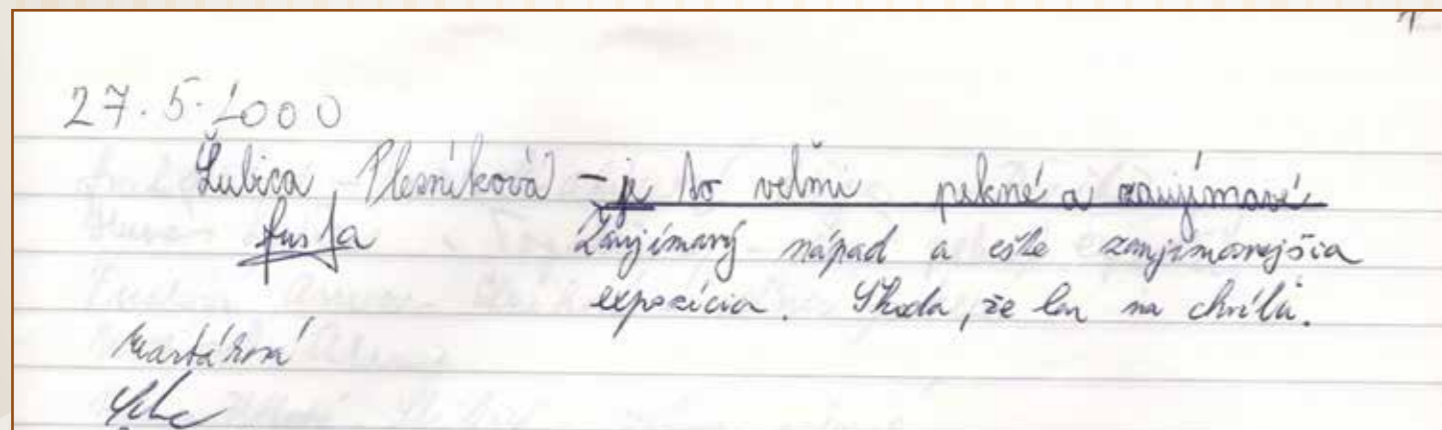 27.5.2000
Ľubica Plesníková - je to veľmi pekné a zaujímavé
Zaujímavý nápad a ešte zaujímavejšia
expozícia. Škoda, že len na chvíľu.
Martáková